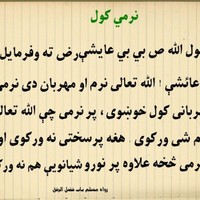 نرمي کول
ول الله ص بي بي عايشې رض ته وفرمايل
عائشې ! الله تعالی نرم او مهربان دی نرمي
هرباني کول خوښوي ، پر نرمي چې الله تعالی
م شی ورکوي هغه پرسختۍ نه ورکوي او
رمی څخه علاوه پر نورو شيانويې هم نه ورک
رواه مسلم باب فضل الرفق